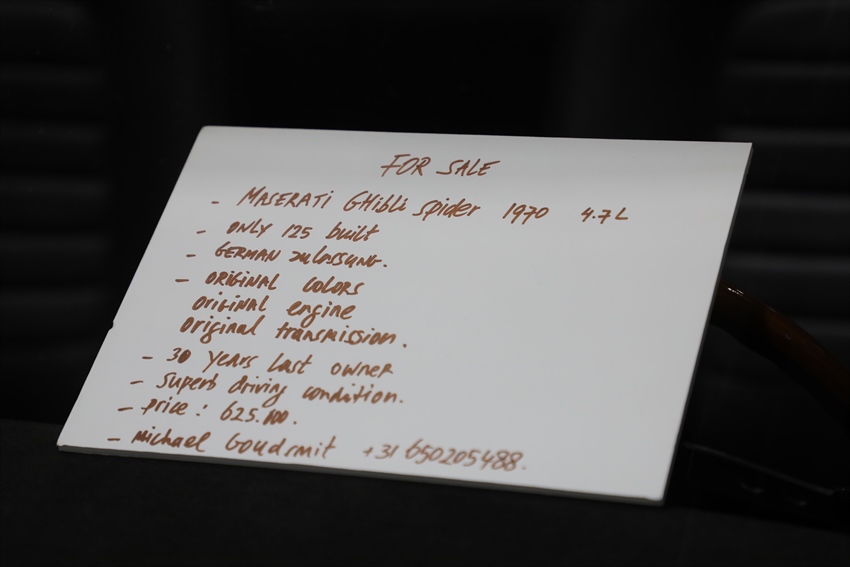 FOR SALE
- MASERATi GHibli spider 1970 4.7L
- ONLY 125 built
- GERMAN zulassung.
- ORiGiNAL colors
ORiGiNAL engine
Original transmission.
- 30 years last owner
- superb driving condition.
- price : 625.000.
- michael Goudsmit +31 650205488.